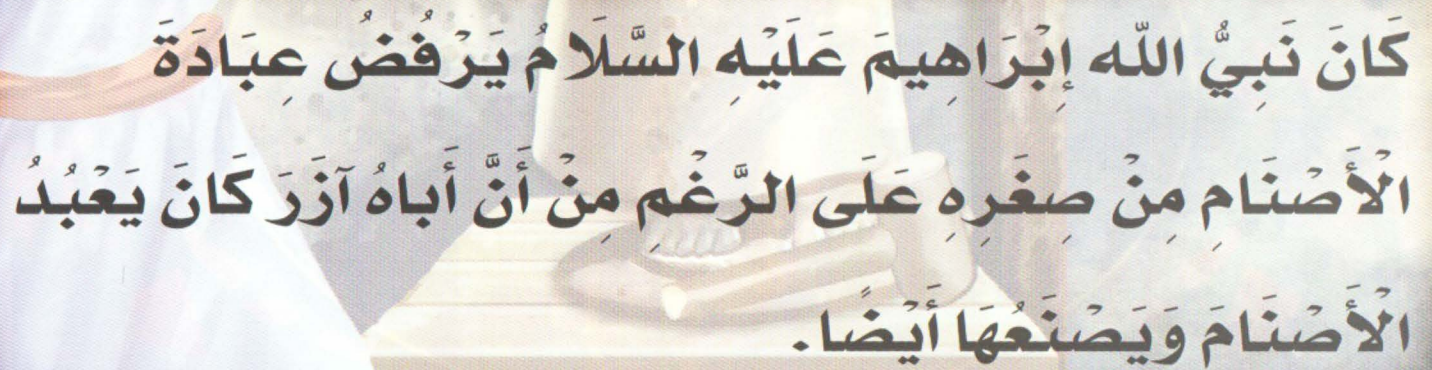 كَانَ نَبِيُّ اللّه إِبْرَاهِيمَ عَلَيْهِ السَّلَامُ يَرْفُضُ عِبَادَةَ
الْأَصْنَامِ مِنْ صِغَرِهِ عَلَى الرَّغْمِ مِنْ أَنَّ أَباهُ آزَرَ كَانَ يَعْبُدُ
الْأَصْنَامَ وَيَصْنَعُهَا أَيْضًا.